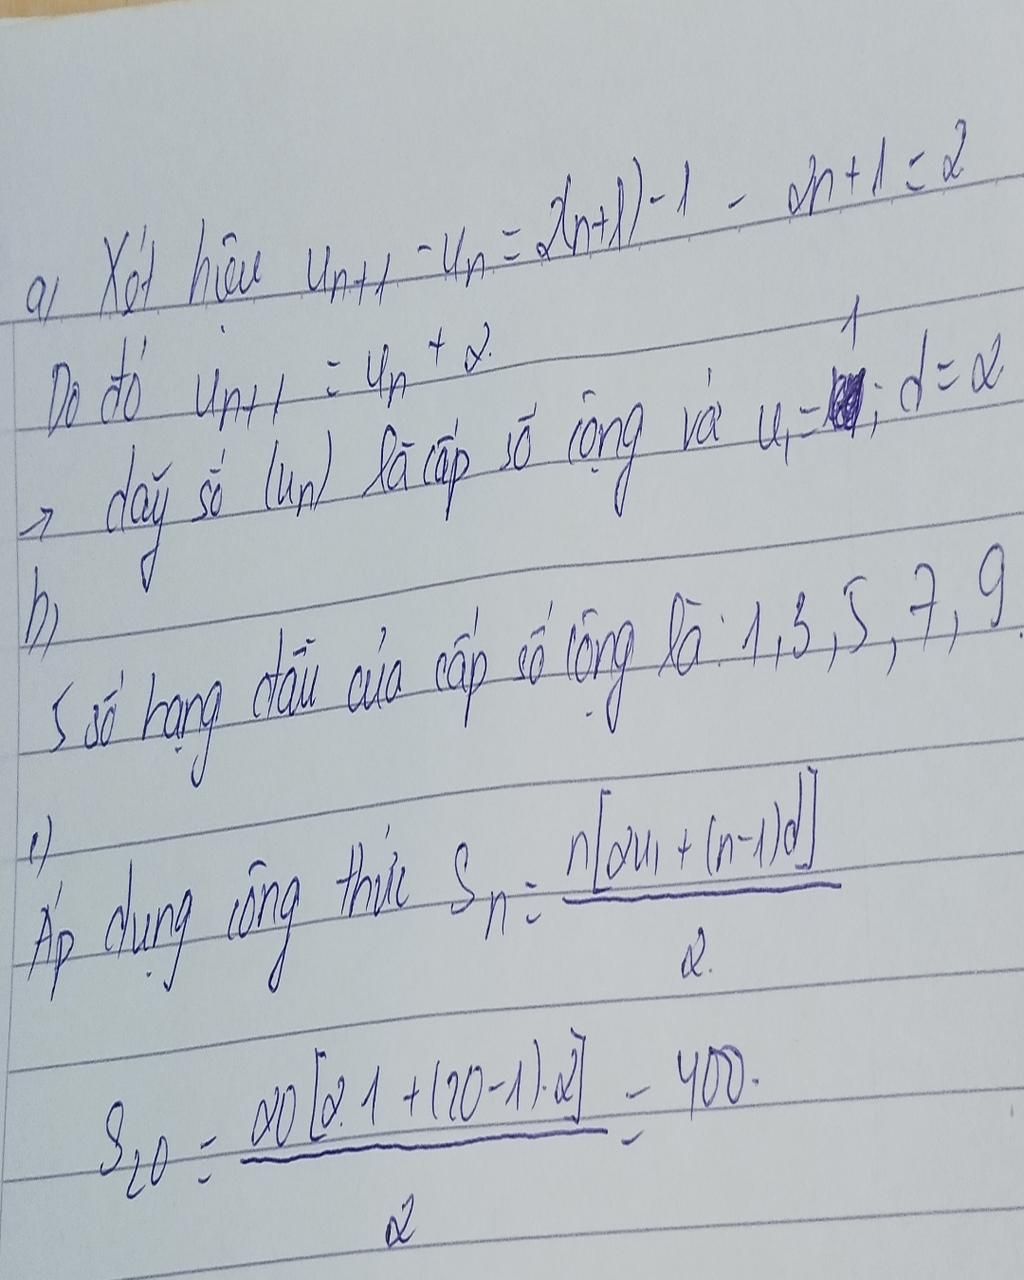 a) Xét hiệu uₙ₊₁ - uₙ = 2(n+1) - 1 - 2n + 1 = 2
Do đó uₙ₊₁ = uₙ + 2.
→ dãy số (uₙ) là cấp số cộng và u₁ = 1; d = 2
b)
5 số hạng đầu của cấp số cộng là: 1, 3, 5, 7, 9
c)
Áp dụng công thức Sₙ = n[2u₁ + (n-1)d] / 2.
S₂₀ = 20[2.1 + (20-1).2] / 2 = 400.